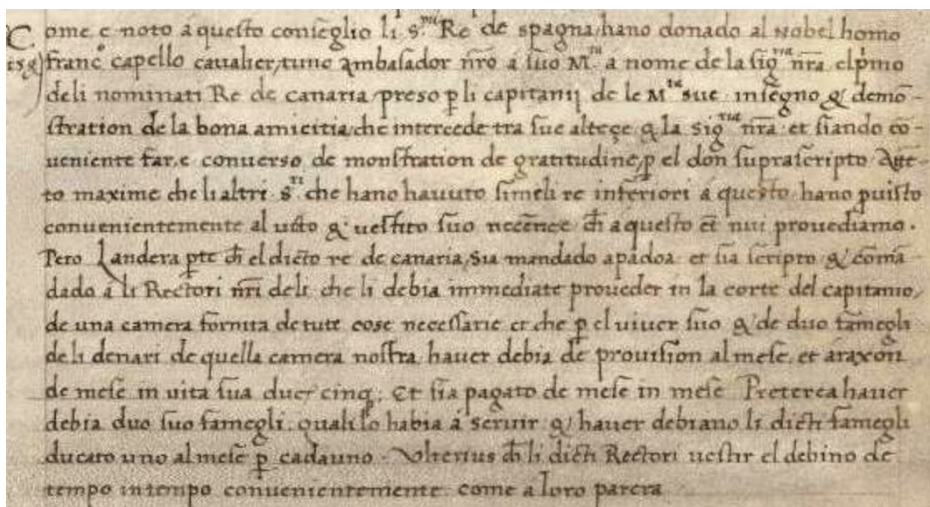 Come e noto a questo conseglio li s.mi Re de spagna hano donado al Nobel homo
franc° capello cavalier, tunc ambasador nr̄o a suo M.ta a nome de la sig.ria nr̄a el pmo
deli nominati Re de canaria preso p̱ li capitanij de le M.ta sue insegno & demō-
stration de la bona amicitia, che intercede tra sue alteçe & la Sig.ria nr̄a et siando cō-
veniente far, e converso demonstration de gratitudine, p̱ el don suprascripto Atte-
to maxime che li altri s.ri che hano havuto simeli re inferiori a questo hano puisto
convenientemente al victo & vestito suo necēne ch̄ a questo et̄ nui provediamo.
Pero Landera pte ch̄ el dicto re de canaria, sia mandado a padoa et sia scripto & comā-
dado a li Rectori nr̄i deli che li debia immediate proveder in la corte del capitanio,
de una camera fornita de tute cose necessarie et che p̱ el viver suo & de duo famegli
deli denari de quella camera nostra haver debia de provision al mese, et a raxon
de mese in vita sua duc̄ cinq; Et sia pagato de mese in mese Preterea haver
debia duo suo famegli quali lo habia a servir & haver debiano li dicti famegli
ducato uno al mese p̱ cadauno Ulterius ch̄ li dicti Rectori vestir el debino de
tempo in tempo convenientemente come a loro parera